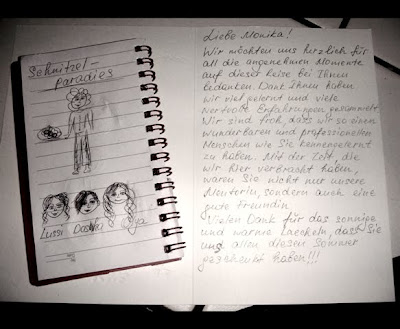 Schnitzel-
paradies
Lussi Dasha Olja
Liebe Monika!
Wir möchten uns herzlich für
all die angenehmen Momente
auf dieser Reise bei Ihnen
bedanken. Dank Ihnen haben
wir viel gelernt und viele
wertvolle Erfahrungen gesammelt.
Wir sind froh, dass wir so einen
wunderbaren und professionellen
Menschen wie Sie kennengelernt
zu haben. Mit der Zeit, die
wir hier verbracht haben,
waren Sie nicht nur unsere
Mentorin, sondern auch eine
gute Freundin.
Vielen Dank für das sonnige
und warme Laecheln, dass Sie
uns allen diesen Sommer
geschenkt haben!!!